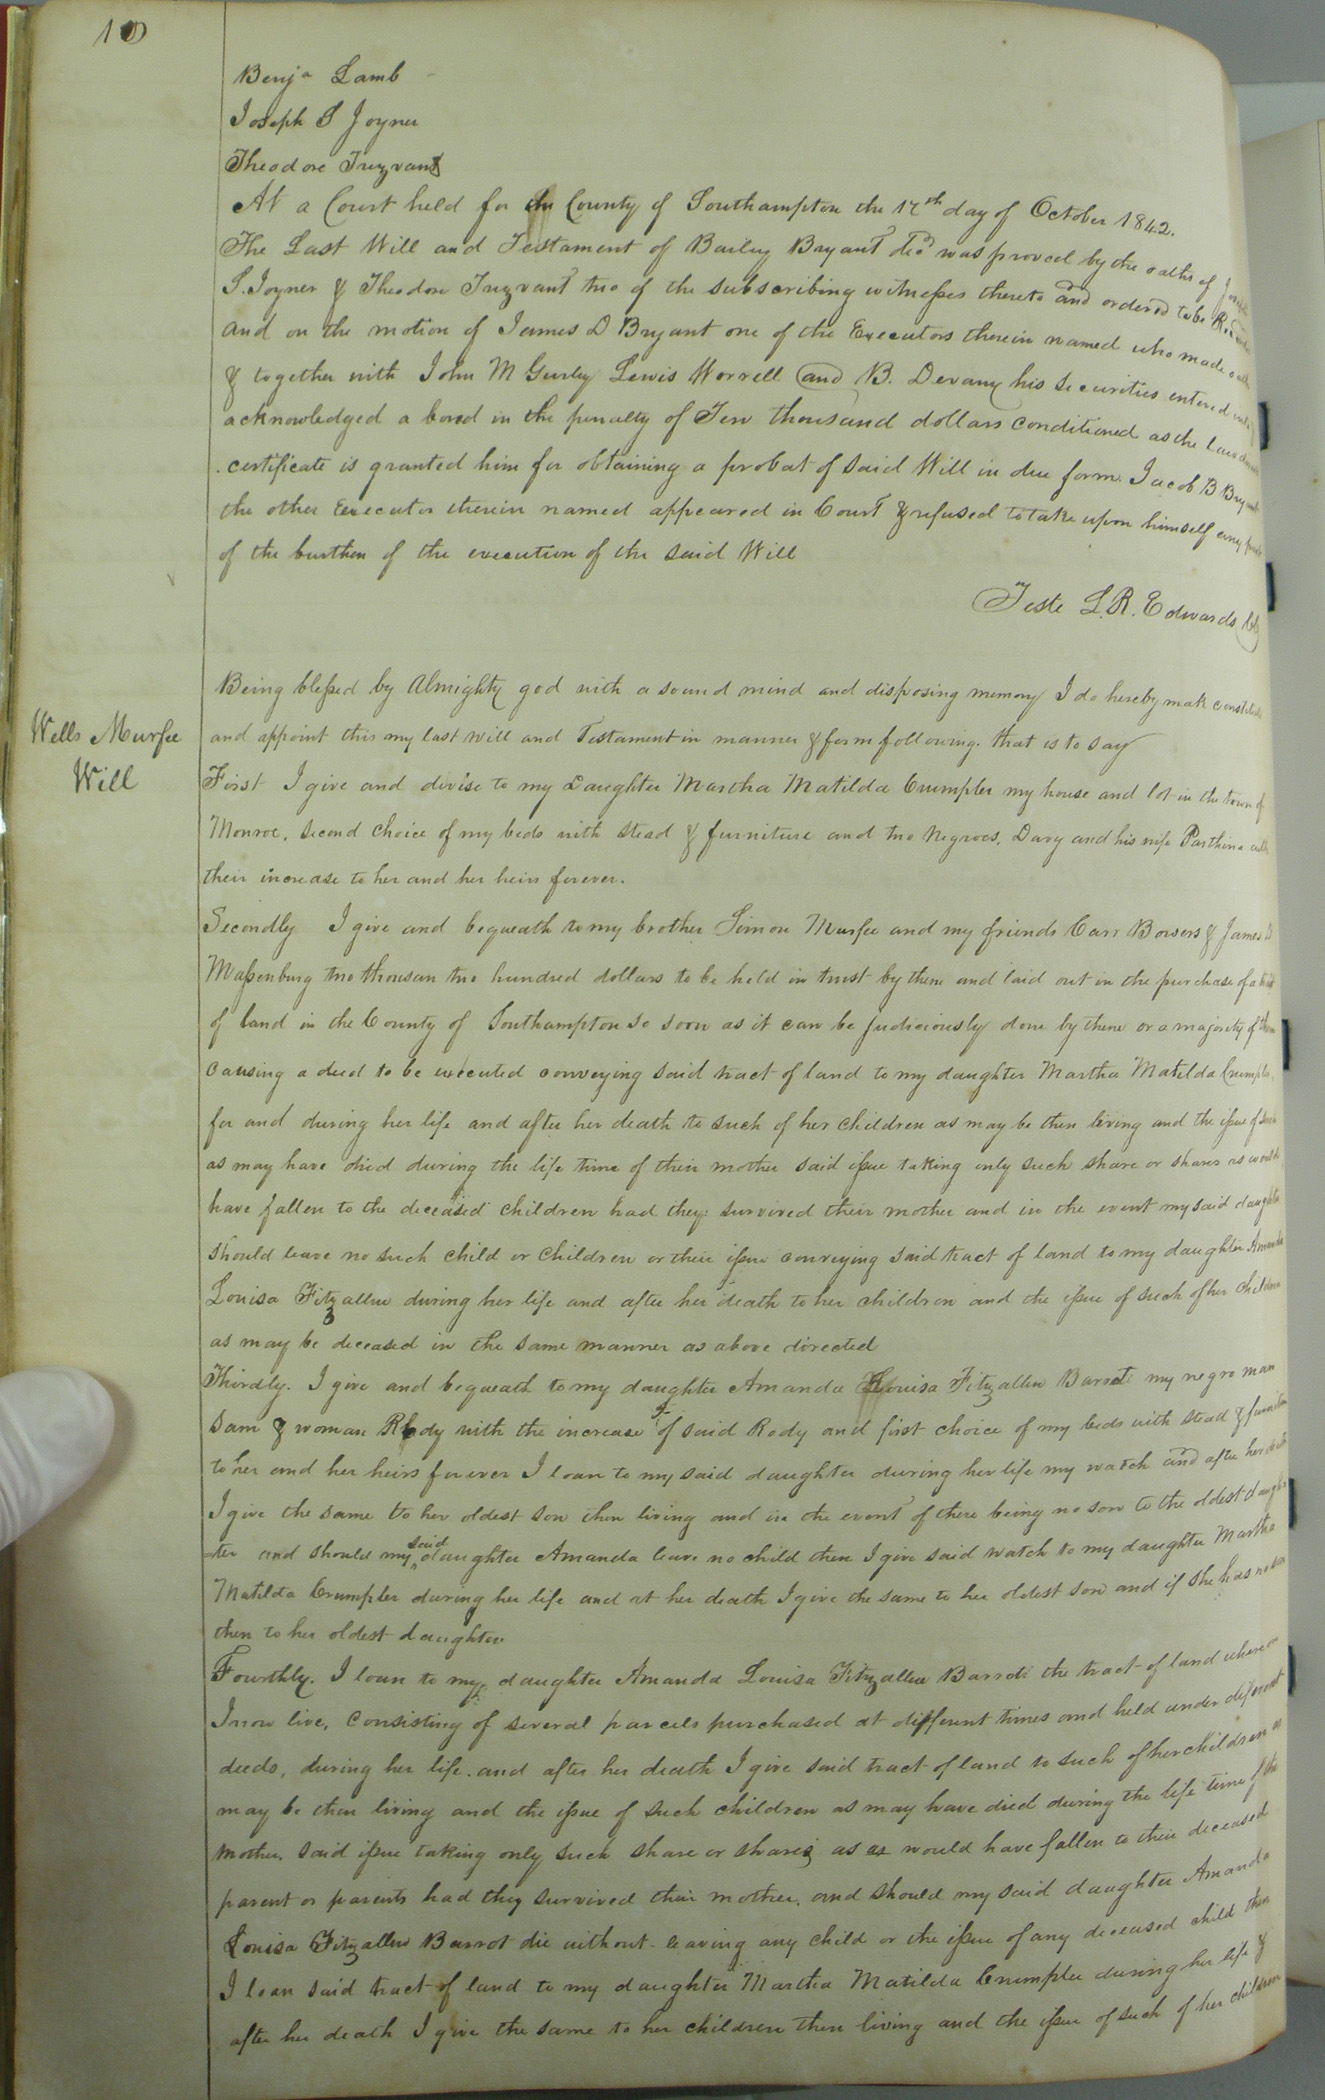 10
Benja Lamb
Joseph S Joyner
Theodore Trezvant
At a Court held for the County of Southampton the 17th day of October 1842.
The Last Will and Testament of Bailey Bryant decd was proved by the oaths of Joseph
S. Joyner & Theodore Trezvant two of the subscribing witnesses thereto and ordered to be Recorded
and on the motion of James D Bryant one of the Executors therein named who made oath
& together with John M Gurley Lewis Worrell and B. Devany his securities entered into &
acknowledged a bond in the penalty of Ten thousand dollars conditioned as the law directs
certificate is granted him for obtaining a probat of said Will in due form. Jacob B Bryant
the other Executor therein named appeared in Court & refused to take upon himself any part
of the burthen of the execution of the said Will
Teste L. R. Edwards Clk
Wells Murfee
Will
Being blessed by Almighty god with a sound mind and disposing memory I do hereby make constitute
and appoint this my last will and Testament in manner & form following. that is to say
First I give and devise to my Daughter Martha Matilda Crumpler my house and lot in the town of
Monroe, second choice of my beds with stead & furniture and two Negroes, Davy and his wife Parthina with
their increase to her and her heirs forever.
Secondly I give and bequeath to my brother Simon Murfee and my friends Carr Bowers & James D
Massenburg two thousan two hundred dollars to be held in trust by them and laid out in the purchase of a tract
of land in the County of Southampton so soon as it can be judiciously done by them or a majority of them
causing a deed to be executed conveying said tract of land to my daughter Martha Matilda Crumpler
for and during her life and after her death to such of her children as may be then living and the issue of such
as may have died during the life time of their mother said issue taking only such share or shares as would
have fallen to the deceased children had they survived their mother and in the event my said daughter
should leave no such child or children or their issue conveying said tract of land to my daughter Amanda
Louisa Fitzallen during her life and after her death to her children and the issue of such of her children
as may be deceased in the same manner as above directed
Thirdly. I give and bequeath to my daughter Amanda Louisa Fitzallen Barrot my negro man
Sam & woman Rody with the increase of said Rody and first choice of my beds with stead & furniture
to her and her heirs forever I loan to my said daughter during her life my watch and after her death
I give the same to her oldest son then living and in the event of there being no son to the oldest daugh
-ter and should my said daughter Amanda leave no child then I give said watch to my daughter Martha
Matilda Crumpler during her life and at her death I give the same to her oldest son and if she has no son
then to her oldest daughter.
Fourthly. I loan to my daughter Amanda Louisa Fitzallen Barrot the tract of land whereon
I now live, consisting of several parcels purchased at different times and held under different
deeds, during her life. and after her death I give said tract of land to such of her children as
may be then living and the issue of such children as may have died during the life time of the
mother, said issue taking only such share or shares as as would have fallen to their deceased
parent or parents had they survived their mother. and should my said daughter Amanda
Louisa Fitzallen Barrot die without leaving any child or the issue of any deceased child then
I loan said tract of land to my daughter Martha Matilda Crumpler during her life &
after her death I give the same to her children then living and the issue of such of her children